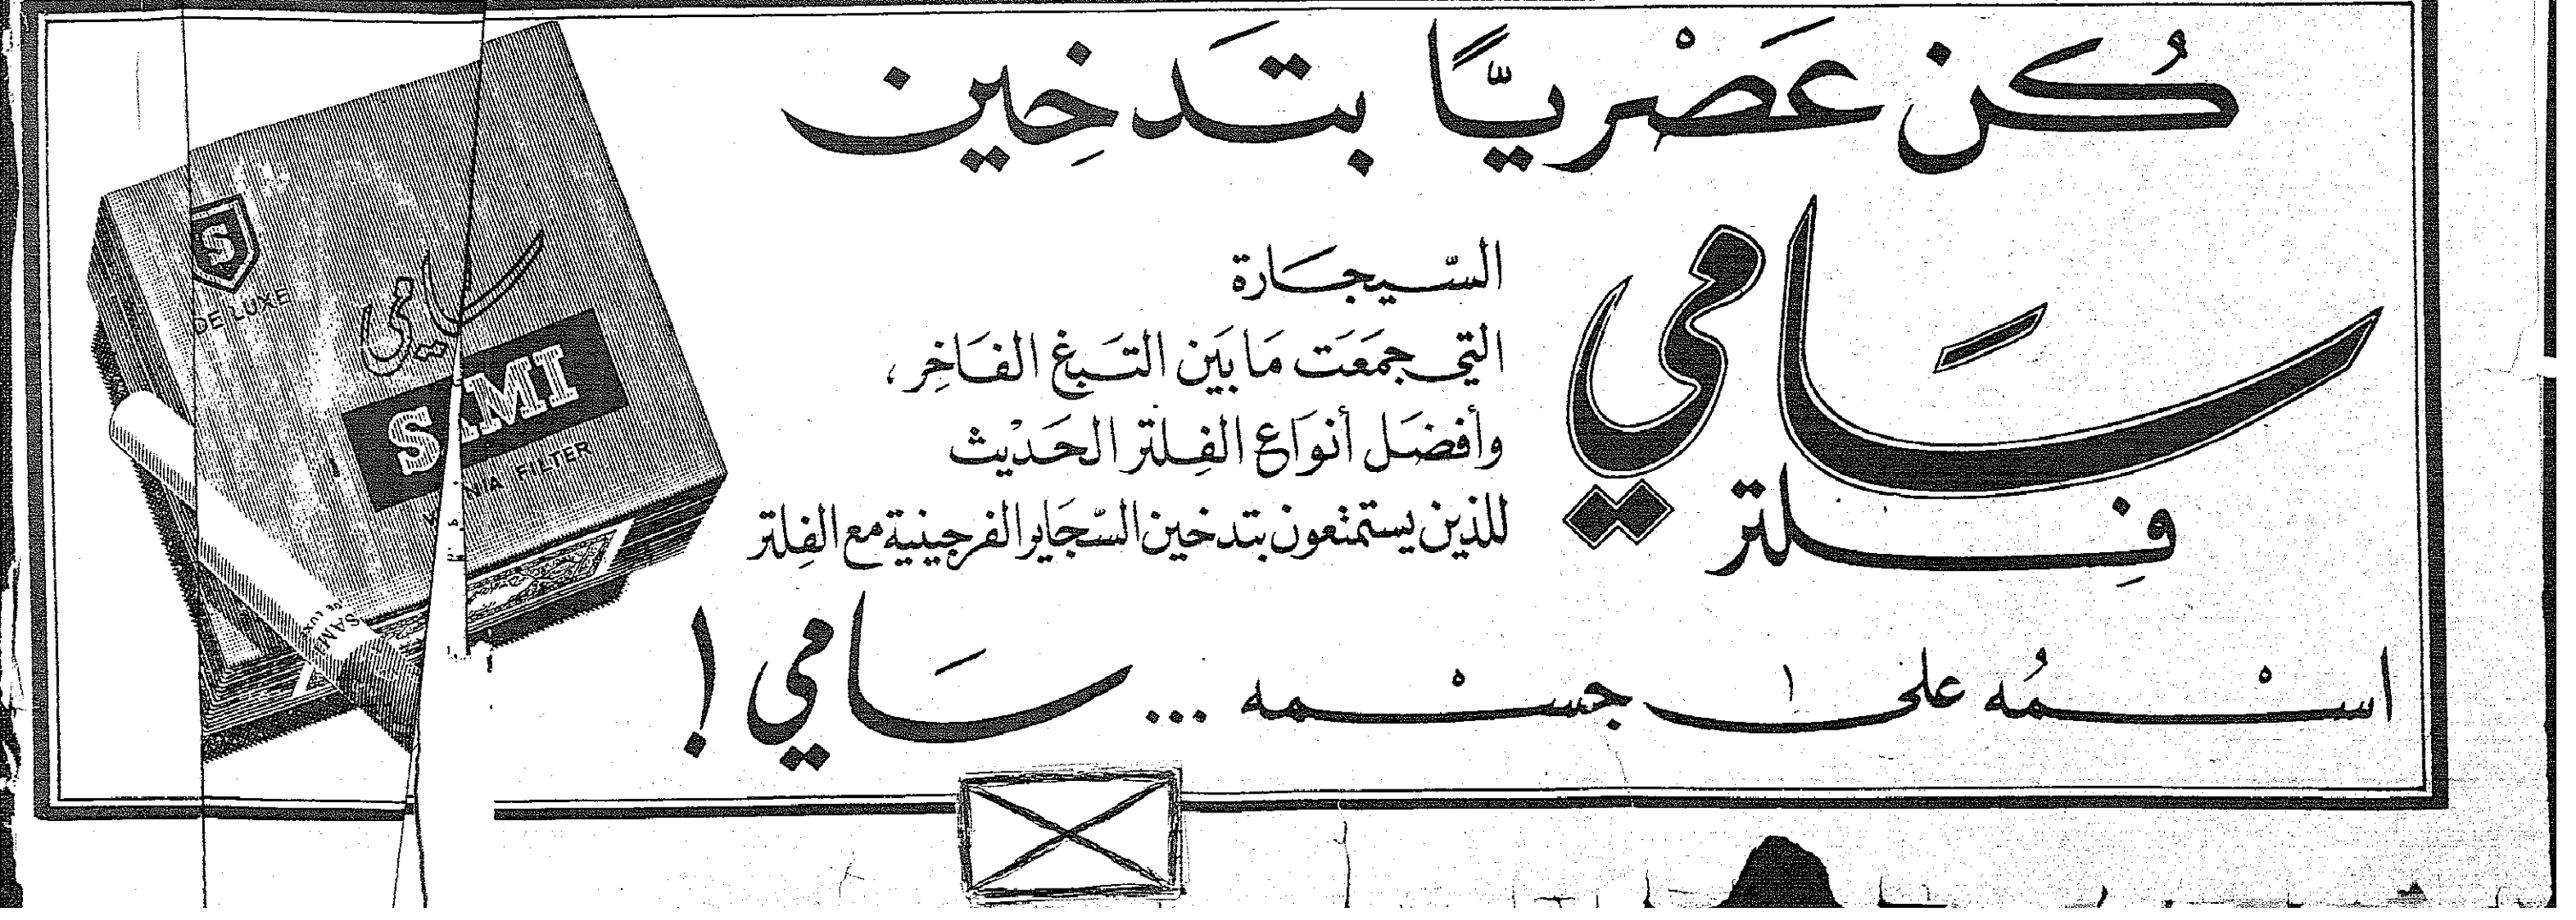 كُن عَصْريًّا بتَدخِين
سَامي
فِلتر
السّيجَارة
التي جمَعَت مَا بَين التَبغ الفَاخِر،
وأفضَل أنوَاع الفِلتر الحَديْث
للذين يستمتعون بتدخين السّجَاير الفرجينية مع الفِلتر
اسْمُه على جسْمه ... سَامي !
S
DE LUXE
سامي
SAMI
FILTER
SAMI
DE LUX